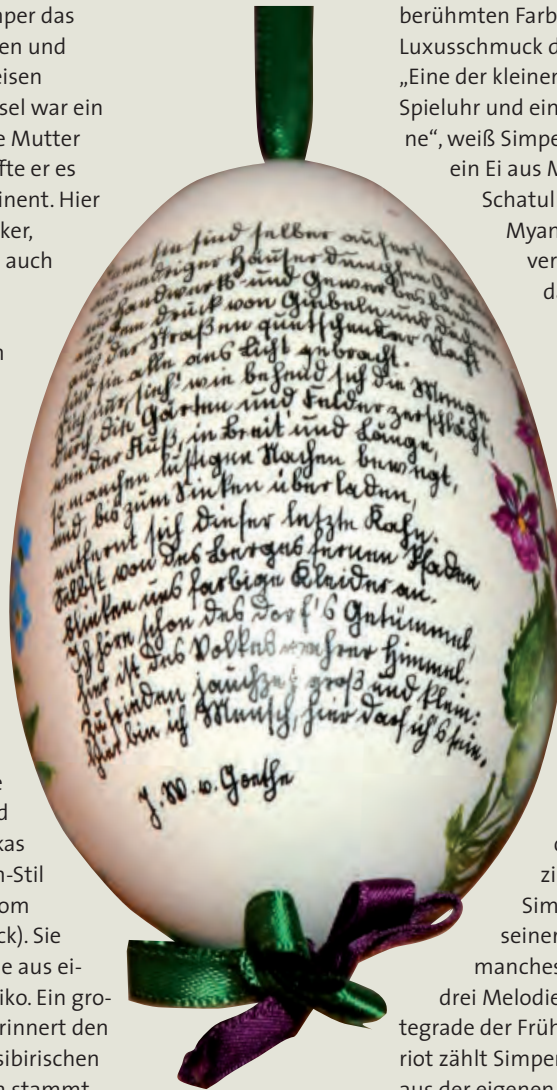 nper das
en und
eisen
sel war ein
e Mutter
fte er es
inent. Hier
ker,
auch
n
e
d
kas
n-Stil
om
ck). Sie
e aus ei-
iko. Ein gro-
rinnert den
sibirischen
n stammt
Denn sie sind selber auferstanden
aus niedriger Häuser dumpfen
aus Handwerks- und Gewerbes banden
aus dem Druck von Giebeln und Dächern
aus der Straßen quetschender Nacht
sind sie alle ans Licht gebracht.
Sieh nur, sieh! wie behend sich die Menge
durch die Gärten und Felder zerschlägt,
wie der Fluß, in Breit' und Länge,
so manchen lustigen Nachen bewegt,
und, bis zum Sinken überladen,
entfernt sich dieser letzte Kahn.
Selbst von des Berges fernen Pfaden
blinken uns farbige Kleider an.
Ich höre schon des Dorf's Getümmel,
hier ist des Volkes wahrer Himmel.
Zufrieden jauchzet groß und klein:
Hier bin ich Mensch, hier darf ich's sein.
J. W. v. Goethe
berühmten Farb
Luxusschmuck d
„Eine der kleiner
Spieluhr und ein
ne“, weiß Simpe
ein Ei aus M
Schatul
Myan
ver
d
zi
Sim
seiner
manches
drei Melodie
tegrade der Früh
riot zählt Simper
aus der eigenen